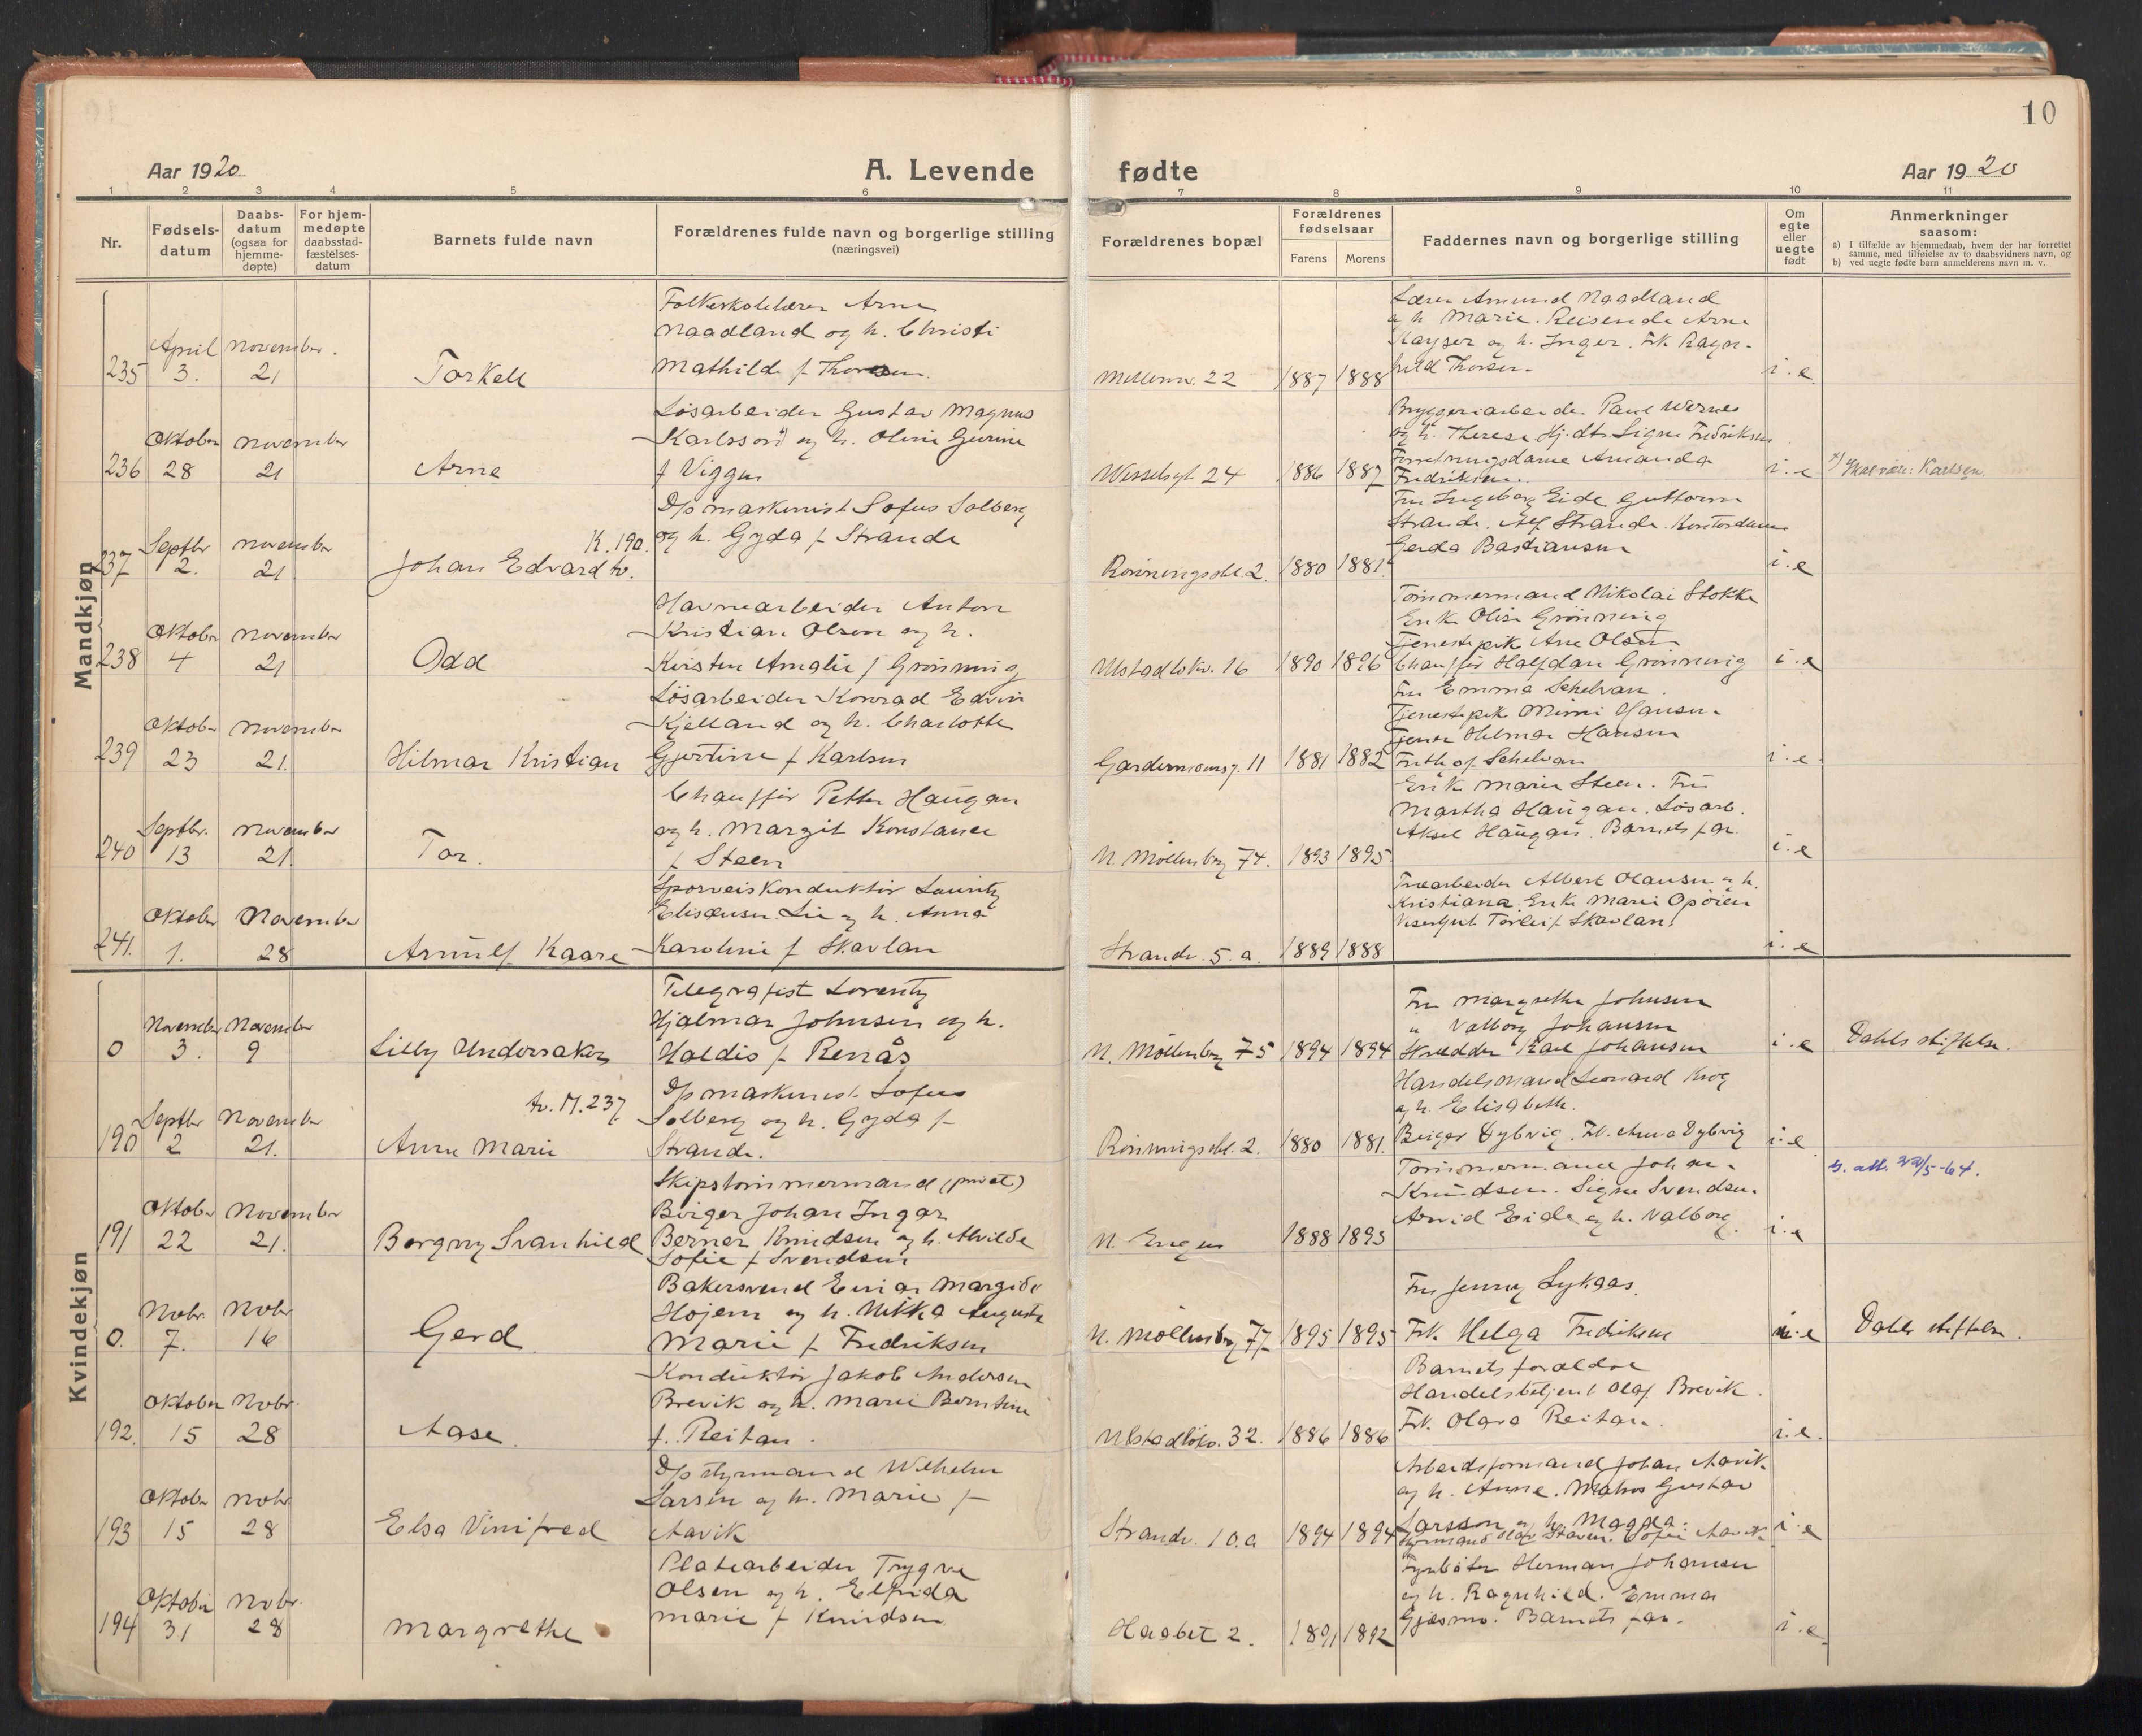 10
Aar 1920
A. Levende fødte
Aar 1920
1 2 3 4 5 6 7 8 9 10 11
Nr.
Fødsels-
datum
Daabs-
datum
(ogsaa for
hjemme-
døpte)
For hjem-
medøpte
daabsstad-
fæstelses-
datum
Barnets fulde navn
Forældrenes fulde navn og borgerlige stilling
(næringsvei)
Forældrenes bopæl
Forældrenes
fødselsaar
Farens Morens
Faddernes navn og borgerlige stilling
Om
egte
eller
uegte
født
Anmerkninger
saasom:
a) I tilfælde av hjemmedaab, hvem der har forrettet
samme, med tilføielse av to daabsvidners navn, og
b) ved uegte fødte barn anmelderens navn m. v.
Mandkjøn
235
April 3.
November 21
Torkell
Folkeskolelærer Arne
Naadland og h. Christi
Mathilde f. Thorsen.
Møllenv. 22
1887 1888
Lærer Amund Naadland
og h. Marie. Reisende Arne
Kayser og h. Inger. Frk. Ragn-
hild Thorsen.
i.e.
236
Oktober 28
November 21
Arne
Løsarbeider Gustav Magnus
Karlsson x) og h. Oline Gurine
f. Viggen
Wesselsgt 24
1886 1887
Bryggeriarbeider Paul Wernes
og h. Therese. Hj. dtr. Signe Fredriksen
Forretningsdame Amanda
Fredriksen.
i.e
x) Skal være: Karlsen.
237
Septbr 2.
November 21
K. 190.
Johan Edvard tv.
D/s maskinist Sofus Solberg
og h. Gyda f. Strande
Rønningsbl. 2.
1880 1881.
Fru Ingeborg Eide. Guttorm
Strande. Alf Strande. Kontordame
Gerda Bastiansen
i.e
238
Oktober 4
November 21
Odd
Havnearbeider Anton
Kristian Olsen og h.
Kirsten Amalie f. Grønning
Ulstadløkv. 16
1890 1896
Tømmermand Nikolai Stokke
Enke Olise Grønning
Tjenestepike Ane Olsen
Chauffør Halfdan Grønning
i.e
239
Oktober 23
November 21.
Hilmar Kristian
Løsarbeider Konrad Edvin
Kjelland og h. Charlotte
Gjertine f. Karlsen
Gardermoensg. 11
1881 1882
Fru Emma Schelvan.
Tjenestepike Mimi Hansen.
Tjener Hilmar Hansen
Frithof Schelvan
i.e.
240
Septbr. 13
November 21.
Tor.
Chauffør Petter Haugan
og h. Margit Konstance
f. Steen
N. Møllenberg 74.
1893 1895.
Enke Marie Steen. Fru
Martha Haugan. Løsarb.
Aksel Haugan. Barnets far.
i.e
241.
Oktober 1.
November 28
Arnulf Kaare
Sporveiskonduktør Lauritz
Elisæusen Lie og h. Anna
Karoline f. Skavlan
Strandv. 5. a.
1889 1888
Træarbeider Albert Olausen og h.
Kristiana. Enke Marie Opøien
Visergut Torleif Skavlan.
i.e
Kvindekjøn
0
November 3.
November 9
Lilly Undersaker
Telegrafist Lorentz
Hjalmar Johnsen og h.
Haldis f. Renås
N. Møllenberg 75
1894 1894
Fru Margrethe Johnsen
" Valborg Johansen
Skrædder Karl Johansen
i.e
Dahls stiftelse.
190
Septbr 2
November 21.
tv. M. 237
Anne Marie
D/s maskinist Sofus
Solberg og h. Gyda f.
Strande.
Rønningsbl. 2.
1880 1881.
Handelsmand Leonard Krog
og h. Elisabeth.
Birger Dybvig. Frk. Anna Dybvig
i.e
191
Oktober 22
November 21.
Borgny Svanhild
Skipstømmermand (privat)
Birger Johan Ingar
Berner Knudsen og h. Alvilde
Sofie f. Svendsen
N. Engen
1888 1895
Tømmermand Johan
Knudsen. Signe Svendsen.
Arvid Eide og h. Valborg.
i.e
0.
Nvbr. 7.
Nvbr 16
Gerd
Bakersvend Einar Margido
Højem og h. Nikka Augusta
Marie f. Fredriksen
N. Møllenberg 77
1895 1895
Fru Jenny Lykaas.
Frk. Helga Fredriksen
i.e
Dahls stiftelse.
192.
Oktober 15
Nvbr. 28
Aase.
Konduktør Jakob Andersen
Brevik og h. Marie Berntine
f. Reitan.
Ulstadløkv. 32.
1886 1886
Barnets forældre
Handelsbetjent Olaf Brevik.
Frk. Olava Reitan.
i.e.
193
Oktober 15
Nvbr. 28
Elsa Vinifred
D/s styrmand Wilhelm
Larsen og h. Marie f.
Aavik
Strandv. 10.a
1894 1894
Arbeidsformand Johan Aavik
og h. Anne. Matros Gustav
Larsson og h. Magda.
Styrmand Olaf Staven. Sofie Aavik
i.e
194
Oktober 31
Nvbr. 28
Margrethe
Platearbeider Trygve
Olsen og h. Elfrida
Marie f. Knudsen
Haabet 2.
1891 1892
Fyrbøter Herman Johansen
og h. Ragnhild. Emma
Gjæsmo. Barnets far.
i.e.